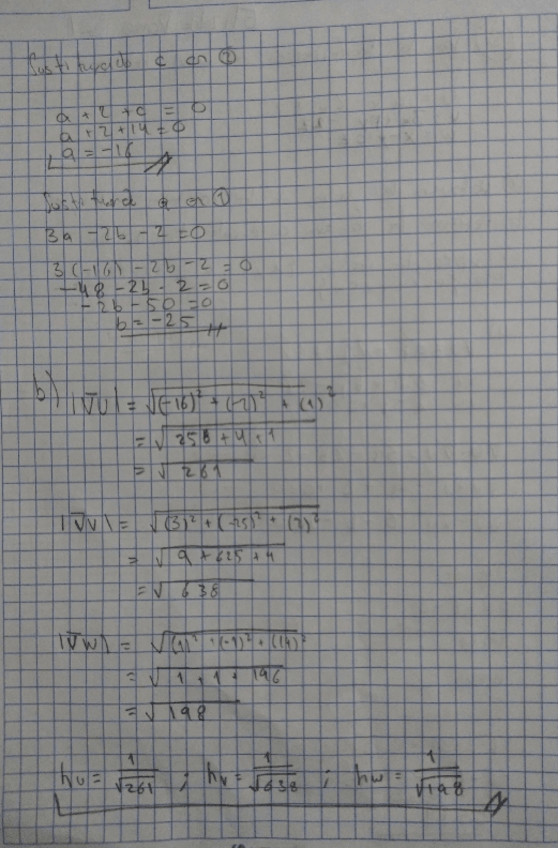 Sustituyendo c en ②
a + 2 + c = 0
a + 2 + 14 = 0
a = -16
Sustituyendo a en ①
3a - 2b - 2 = 0
3(-16) - 2b - 2 = 0
-48 - 2b - 2 = 0
-2b - 50 = 0
b = -25
b) |∇U| = √(-16)² + (-2)² + (1)²
= √256 + 4 + 1
= √261
|∇V| = √(3)² + (-25)² + (2)²
= √9 + 625 + 4
= √638
|∇W| = √(1)² + (-1)² + (14)²
= √1 + 1 + 196
= √198
hu = 1/√261 ; hv = 1/√638 ; hw = 1/√198